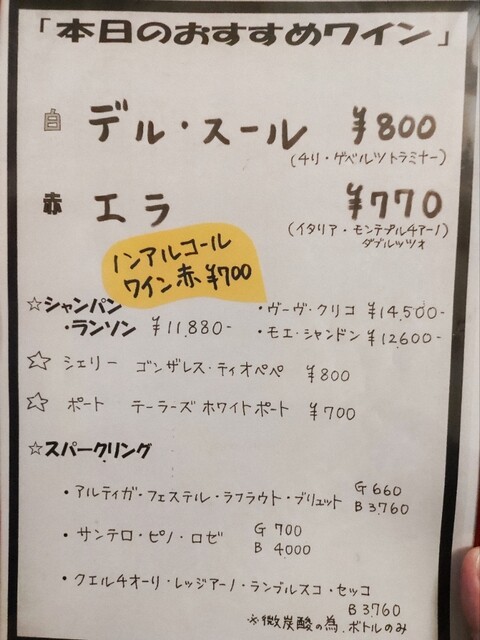 「本日のおすすめワイン」
白 デル・スール ¥800
(チリ・ゲベルツトラミナー)
赤 エラ ¥770
(イタリア・モンテプルチアーノ)
ダブルッツオ
ノンアルコール
ワイン赤 ¥700
☆シャンパン
・ランソン ¥11,880-
・ヴーヴ・クリコ ¥14,500-
・モエ・シャンドン ¥12,600-
☆ シェリー ゴンザレス・ティオペペ ¥800
☆ ポート テーラーズ ホワイトポート ¥700
☆スパークリング
・アルティガ・フェステル・ラフラウト・ブリュット G 660
B 3,760
・サンテロ・ピノ・ロゼ G 700
B 4000
・クエルチオーリ・レッジアーノ・ランブルスコ・セッコ
B 3,760
※微炭酸の為、ボトルのみ